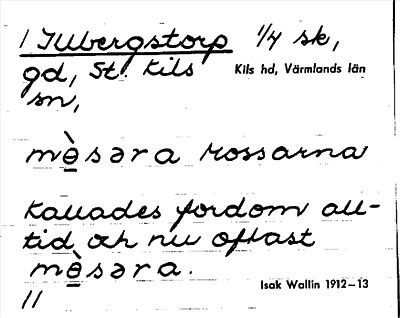 1 Illbergstorp 1/4 sk,
gd, St. Kils
Kils hd, Värmlands län
sn,
mè̱səra mossarna
Kallades fordom all-
tid och nu oftast
mè̱səra.
Isak Wallin 1912–13
11